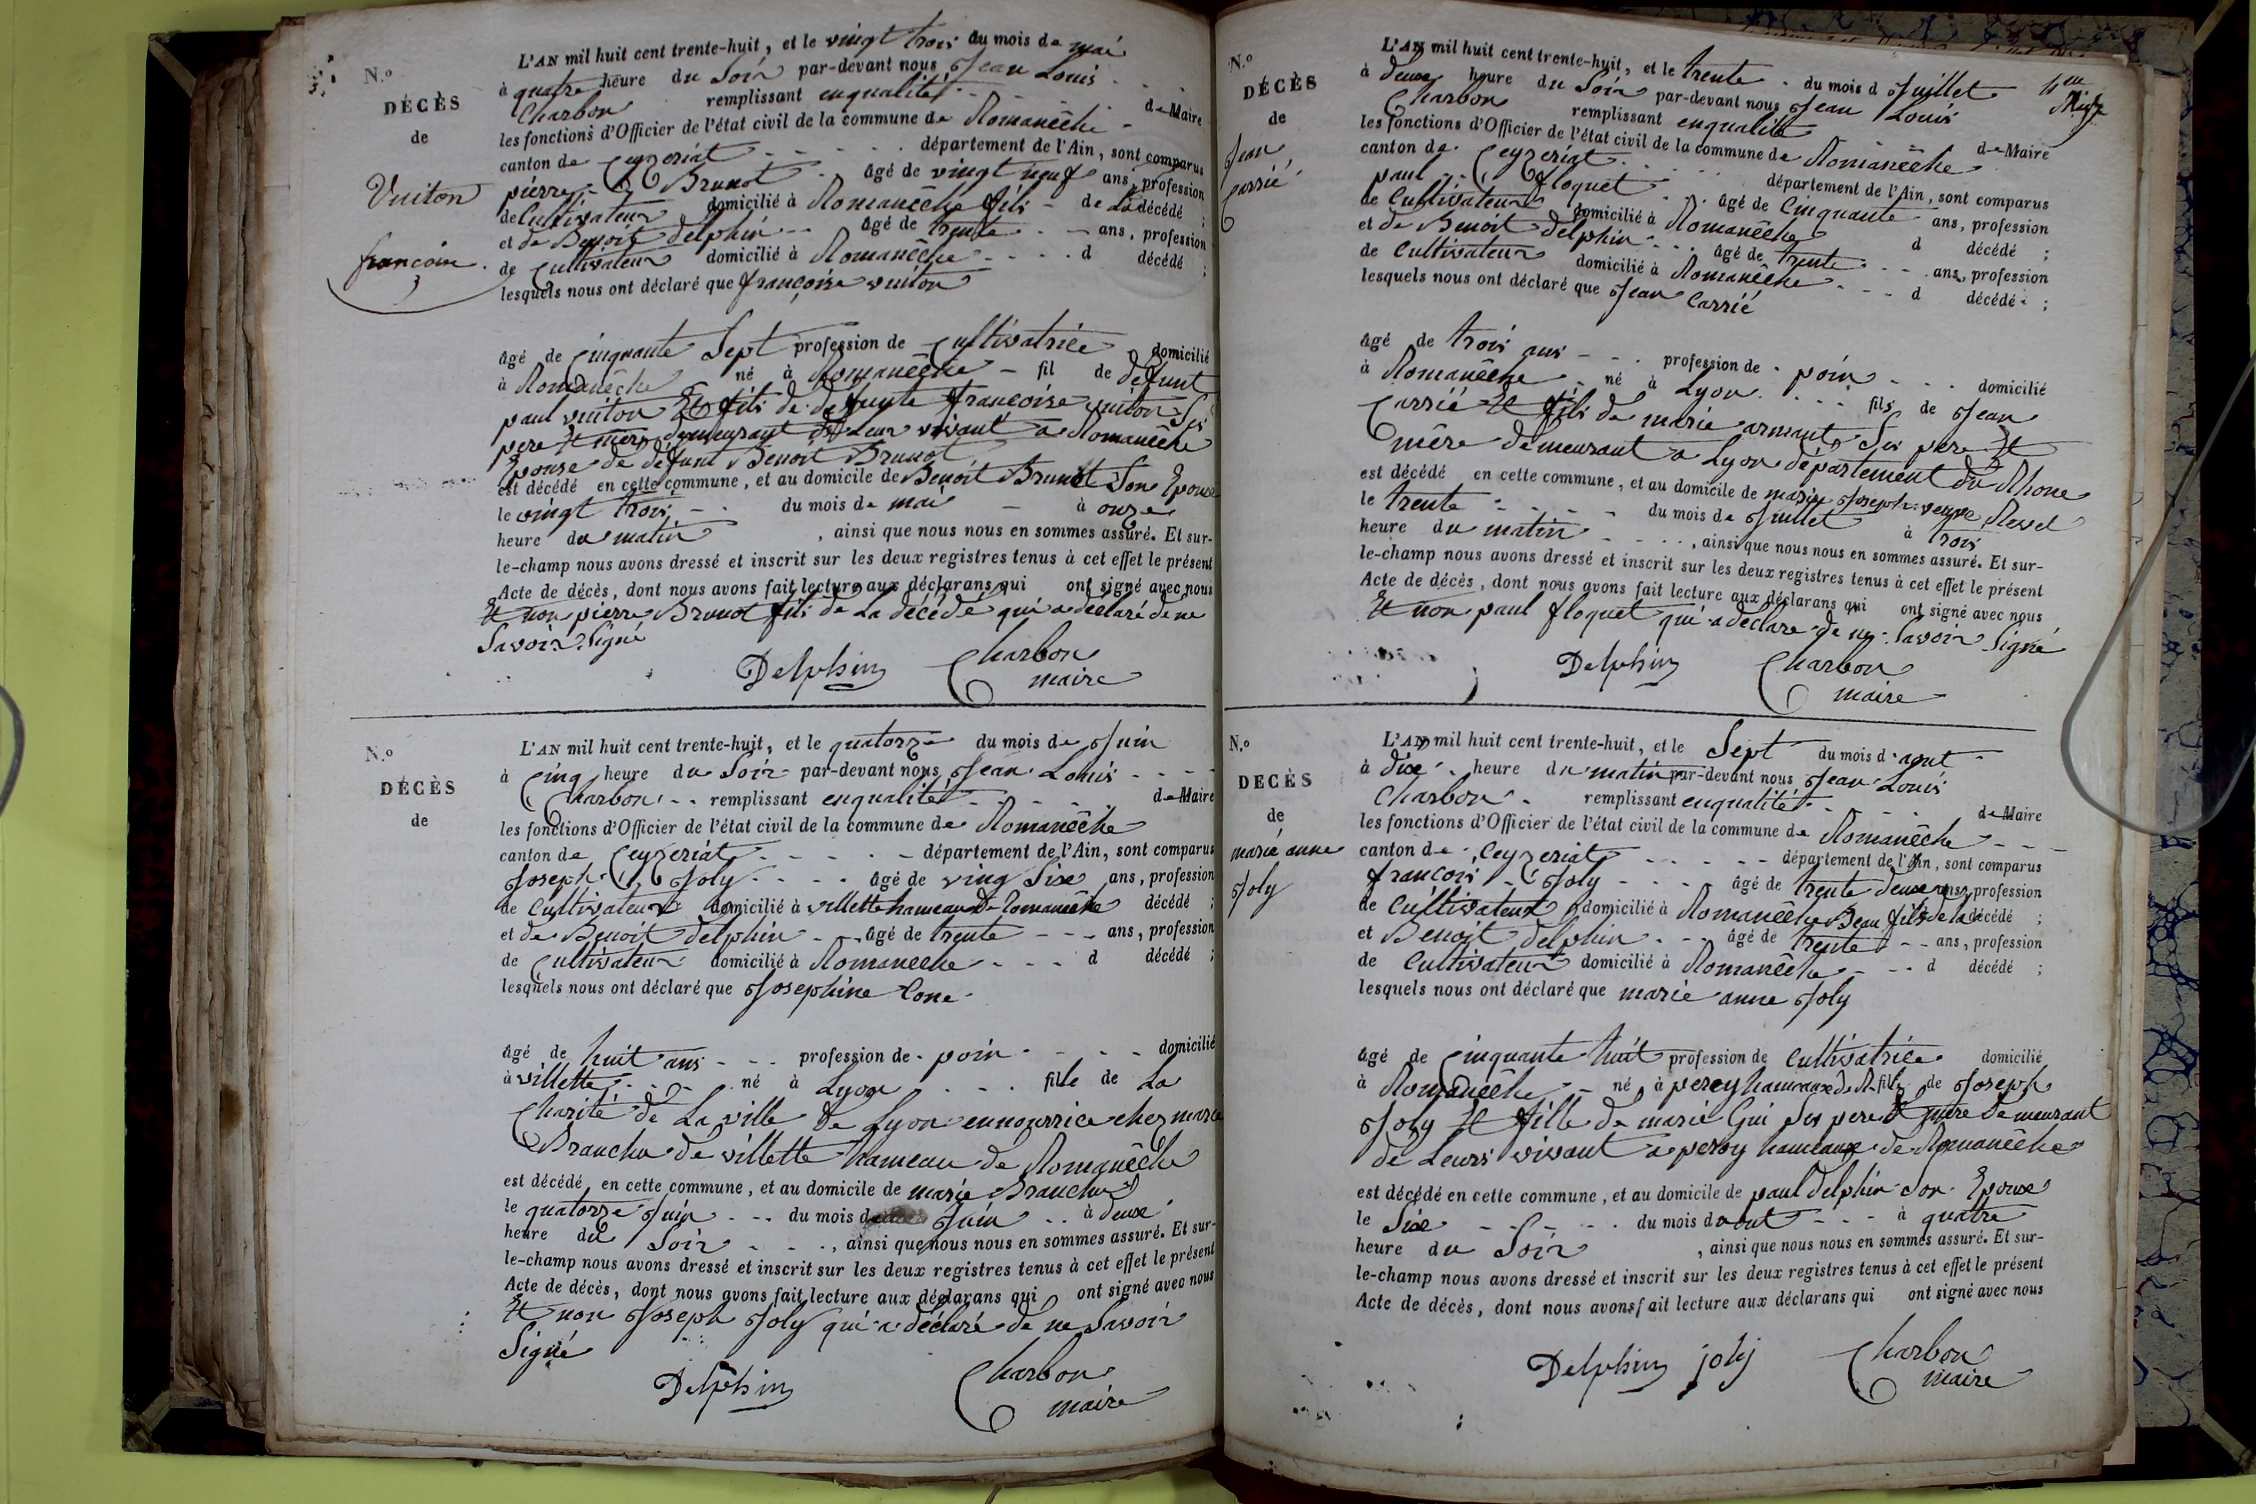 N.o
DÉCÈS
de
Vuiton
françoise
L'AN mil huit cent trente-huit, et le vingt trois du mois de mai
à quatre heure du Soir par-devant nous Jean Louis
Charbon remplissant enqualité de Maire
les fonctions d'Officier de l'état civil de la commune de Romanêche
canton de Ceyzeriat département de l'Ain, sont comparus
pierre Brunot âgé de vingt neuf ans, profession
de Cultivateur domicilié à Romanêche fils de La décédé ;
et de Benoit delphin âgé de trente ans, profession
de Cultivateur domicilié à Romanêche d décédé ;
lesquels nous ont déclaré que françoise vuiton
âgé de Cinquante Sept profession de Cultivatrice domicilié
à Romanêche né à Romanêche fil de défunt
paul vuiton Et fils de defunte françoise vuiton Ses
pere Et mère demeurant de Leur vivant a Romanêche
Epouse de défunt Benoit Brunot
est décédé en cette commune, et au domicile de Benoit Brunot Son Epoux
le vingt trois du mois de mai à onze
heure du matin, ainsi que nous nous en sommes assuré. Et sur-
le-champ nous avons dressé et inscrit sur les deux registres tenus à cet effet le présent
Acte de décès, dont nous avons fait lecture aux déclarans qui ont signé avec nous
Et non pierre Brunot fils de La décédé qui a déclaré de ne
Savoir Signé
Delphin Charbon
maire
N.o
DÉCÈS
de
L'AN mil huit cent trente-huit, et le quatorze du mois de Juin
à Cinq heure du Soir par-devant nous Jean Louis
Charbon remplissant enqualité de Maire
les fonctions d'Officier de l'état civil de la commune de Romanêche
canton de Ceyzeriat département de l'Ain, sont comparus
Joseph Joly âgé de ving Six ans, profession
de Cultivateur domicilié à villette hameau de Romanêche décédé ;
et de Benoit delphin âgé de trente ans, profession
de Cultivateur domicilié à Romanêche d décédé ;
lesquels nous ont déclaré que Josephine Cone
âgé de huit ans profession de poin domicilié
à villette né à Lyon fille de La
Charité de La ville de Lyon ennourrice chez marie
Branchu de villette hameau de Romanêche
est décédé en cette commune, et au domicile de marie Branchu
le quatorze Juin du mois de Juin à deux
heure du Soir, ainsi que nous nous en sommes assuré. Et sur-
le-champ nous avons dressé et inscrit sur les deux registres tenus à cet effet le présent
Acte de décès, dont nous avons fait lecture aux déclarans qui ont signé avec nous
Et non Joseph Joly qui a déclaré de ne Savoir
Signé
Delphin Charbon
maire
N.o
DÉCÈS
de
Jean
Carrié
L'AN mil huit cent trente-huit, et le trente du mois d Juillet
à deux heure du Soir par-devant nous Jean Louis
Charbon remplissant enqualité de Maire
les fonctions d'Officier de l'état civil de la commune de Romanêche
canton de Ceyzeriat département de l'Ain, sont comparus
paul floquet âgé de Cinquante ans, profession
de Cultivateur domicilié à Romanêche d décédé ;
et de Benoit delphin âgé de trente ans, profession
de Cultivateur domicilié à Romanêche d décédé ;
lesquels nous ont déclaré que Jean Carrié
âgé de trois ans profession de poin domicilié
à Romanêche né à Lyon fils de Jean
Carrié Et fils de marie armant Ses pere Et
mère demeurant a Lyon département du Rhone
est décédé en cette commune, et au domicile de marie Joseph veuve
le trente du mois de Juillet à trois
heure du matin, ainsi que nous nous en sommes assuré. Et sur-
le-champ nous avons dressé et inscrit sur les deux registres tenus à cet effet le présent
Acte de décès, dont nous avons fait lecture aux déclarans qui ont signé avec nous
Et non paul floquet qui a déclare de ne Savoir Signé
Delphin Charbon
maire
N.o
DECÈS
de
marie anne
Joly
L'AN mil huit cent trente-huit, et le Sept du mois d'aout
à dix heure du matin par-devant nous Jean Louis
Charbon remplissant enqualité de Maire
les fonctions d'Officier de l'état civil de la commune de Romanêche
canton de Ceyzeriat département de l'Ain, sont comparus
françois Joly âgé de trente deux ans, profession
de Cultivateur domicilié à Romanêche Beau fils de la décédé ;
et Benoit delphin âgé de trente ans, profession
de Cultivateur domicilié à Romanêche d décédé ;
lesquels nous ont déclaré que marie anne Joly
âgé de Cinquante huit profession de Cultivatrice domicilié
à Romanêche né à perey hameaux de R. fil de Joseph
Joly Et fille de marie Gui Ses pere Et mère demeurant
de Leurs vivant a perey hameaux de Romanêche
est décédé en cette commune, et au domicile de paul delphin Son Epoux
le Six du mois d'aout à quatre
heure du Soir, ainsi que nous nous en sommes assuré. Et sur-
le-champ nous avons dressé et inscrit sur les deux registres tenus à cet effet le présent
Acte de décès, dont nous avons fait lecture aux déclarans qui ont signé avec nous
Delphin joly Charbon
maire